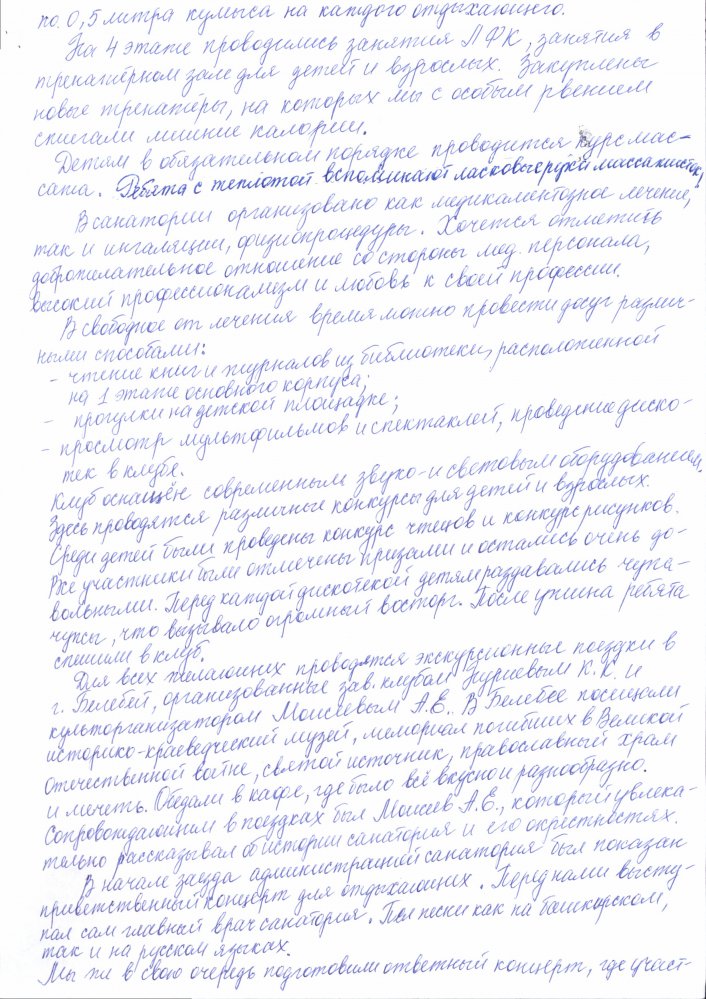 по 0,5 литра кумыса на каждого отдыхающего.
На 4 этаже проводились занятия ЛФК, занятия в
тренажёрном зале для детей и взрослых. Закуплены
новые тренажёры, на которых мы с особым рвением
сжигали лишние калории.
Детям в обязательном порядке проводится курс мас-
сажа. Ребята с теплотой вспоминают ласковые руки массажисток.
В санатории организовано как медикаментозное лечение,
так и ингаляции, физиопроцедуры. Хочется отметить
доброжелательное отношение со стороны мед. персонала,
высокий профессионализм и любовь к своей профессии.
В свободное от лечения время можно провести досуг различ-
ными способами:
- чтение книг и журналов из библиотеки, расположенной
на 1 этаже основного корпуса;
- прогулки на детской площадке;
- просмотр мультфильмов и спектаклей, проведение диско-
тек в клубе.
Клуб оснащён современным звуко- и световым оборудованием.
Здесь проводятся различные конкурсы для детей и взрослых.
Среди детей были проведены конкурс чтецов и конкурс рисунков.
Все участники были отмечены призами и остались очень до-
вольными. Перед каждой дискотекой детям раздавались чупа-
чупсы, что вызывало огромный восторг. После ужина ребята
спешили в клуб.
Для всех желающих проводятся экскурсионные поездки в
г. Белебей, организованные зав. клубом Нуриевым К.К. и
культорганизатором Моисеевым А.Е. В Белебее посещали
историко-краеведческий музей, мемориал погибших в Великой
Отечественной войне, святой источник, православный храм
и мечеть. Обедали в кафе, где было всё вкусно и разнообразно.
Сопровождающим в поездках был Моисеев А.Е., который увлека-
тельно рассказывал об истории санатория и его окрестностях.
В начале заезда администрацией санатория был показан
приветственный концерт для отдыхающих. Перед нами высту-
пал сам главный врач санатория. Пел песни как на башкирском,
так и на русском языках.
Мы же в свою очередь подготовили ответный концерт, где участ-